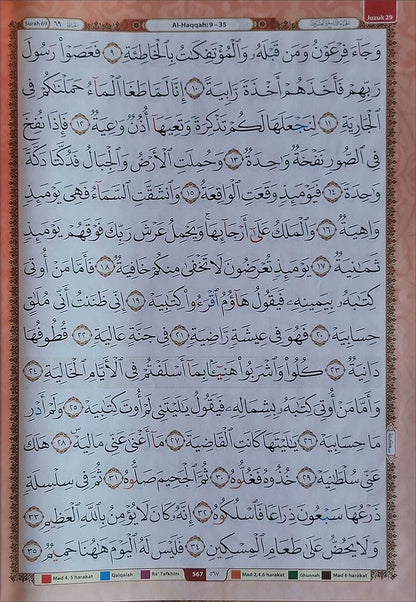 Surah 69 ٦٩
Al-Haqqah: 9 – 35
Juzuk 29
وَجَآءَ فِرْعَوْنُ وَمَن قَبْلَهُۥ وَٱلْمُؤْتَفِكَٰتُ بِٱلْخَاطِئَةِ ٩ فَعَصَوْا۟ رَسُولَ
رَبِّهِمْ فَأَخَذَهُمْ أَخْذَةً رَّابِيَةً ١٠ إِنَّا لَمَّا طَغَا ٱلْمَآءُ حَمَلْنَٰكُمْ فِى
ٱلْجَارِيَةِ ١١ لِنَجْعَلَهَا لَكُمْ تَذْكِرَةً وَتَعِيَهَآ أُذُنٌ وَٰعِيَةٌ ١٢ فَإِذَا نُفِخَ
فِى ٱلصُّورِ نَفْخَةٌ وَٰحِدَةٌ ١٣ وَحُمِلَتِ ٱلْأَرْضُ وَٱلْجِبَالُ فَدُكَّتَا دَكَّةً
وَٰحِدَةً ١٤ فَيَوْمَئِذٍ وَقَعَتِ ٱلْوَاقِعَةُ ١٥ وَٱنشَقَّتِ ٱلسَّمَآءُ فَهِىَ يَوْمَئِذٍ
وَاهِيَةٌ ١٦ وَٱلْمَلَكُ عَلَىٰٓ أَرْجَآئِهَا ۚ وَيَحْمِلُ عَرْشَ رَبِّكَ فَوْقَهُمْ يَوْمَئِذٍ
ثَمَٰنِيَةٌ ١٧ يَوْمَئِذٍ تُعْرَضُونَ لَا تَخْفَىٰ مِنكُمْ خَافِيَةٌ ١٨ فَأَمَّا مَنْ أُوتِىَ
كِتَٰبَهُۥ بِيَمِينِهِۦ فَيَقُولُ هَآؤُمُ ٱقْرَءُوا۟ كِتَٰبِيَهْ ١٩ إِنِّى ظَنَنتُ أَنِّى مُلَٰقٍ
حِسَابِيَهْ ٢٠ فَهُوَ فِى عِيشَةٍ رَّاضِيَةٍ ٢١ فِى جَنَّةٍ عَالِيَةٍ ٢٢ قُطُوفُهَا
دَانِيَةٌ ٢٣ كُلُوا۟ وَٱشْرَبُوا۟ هَنِيٓـًٔۢا بِمَآ أَسْلَفْتُمْ فِى ٱلْأَيَّامِ ٱلْخَالِيَةِ ٢٤
وَأَمَّا مَنْ أُوتِىَ كِتَٰبَهُۥ بِشِمَالِهِۦ فَيَقُولُ يَٰلَيْتَنِى لَمْ أُوتَ كِتَٰبِيَهْ ٢٥ وَلَمْ أَدْرِ
مَا حِسَابِيَهْ ٢٦ يَٰلَيْتَهَا كَانَتِ ٱلْقَاضِيَةَ ٢٧ مَآ أَغْنَىٰ عَنِّى مَالِيَهْ ۜ ٢٨ هَلَكَ
عَنِّى سُلْطَٰنِيَهْ ٢٩ خُذُوهُ فَغُلُّوهُ ٣٠ ثُمَّ ٱلْجَحِيمَ صَلُّوهُ ٣١ ثُمَّ فِى سِلْسِلَةٍ
ذَرْعُهَا سَبْعُونَ ذِرَاعًا فَٱسْلُكُوهُ ٣٢ إِنَّهُۥ كَانَ لَا يُؤْمِنُ بِٱللَّهِ ٱلْعَظِيمِ ٣٣
وَلَا يَحُضُّ عَلَىٰ طَعَامِ ٱلْمِسْكِينِ ٣٤ فَلَيْسَ لَهُ ٱلْيَوْمَ هَٰهُنَا حَمِيمٌ ٣٥
Mad 4, 5 harakat
Qalqalah
Ra' Tafkhim
567 ٥٦٧
Mad 2,4,6 harakat
Ghunnah
Mad 6 harakat